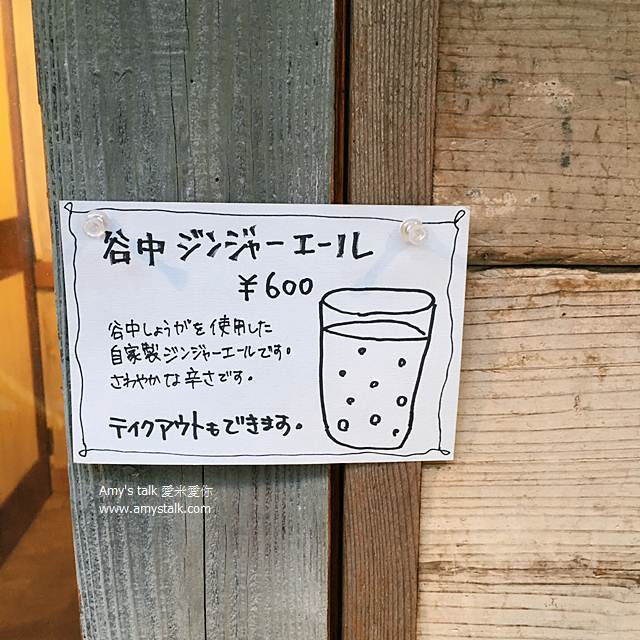 谷中ジンジャーエール
￥600
谷中しょうがを使用した
自家製ジンジャーエールです。
さわやかな辛さです。
テイクアウトもできます。
Amy's talk 愛米愛你
www.amystalk.com